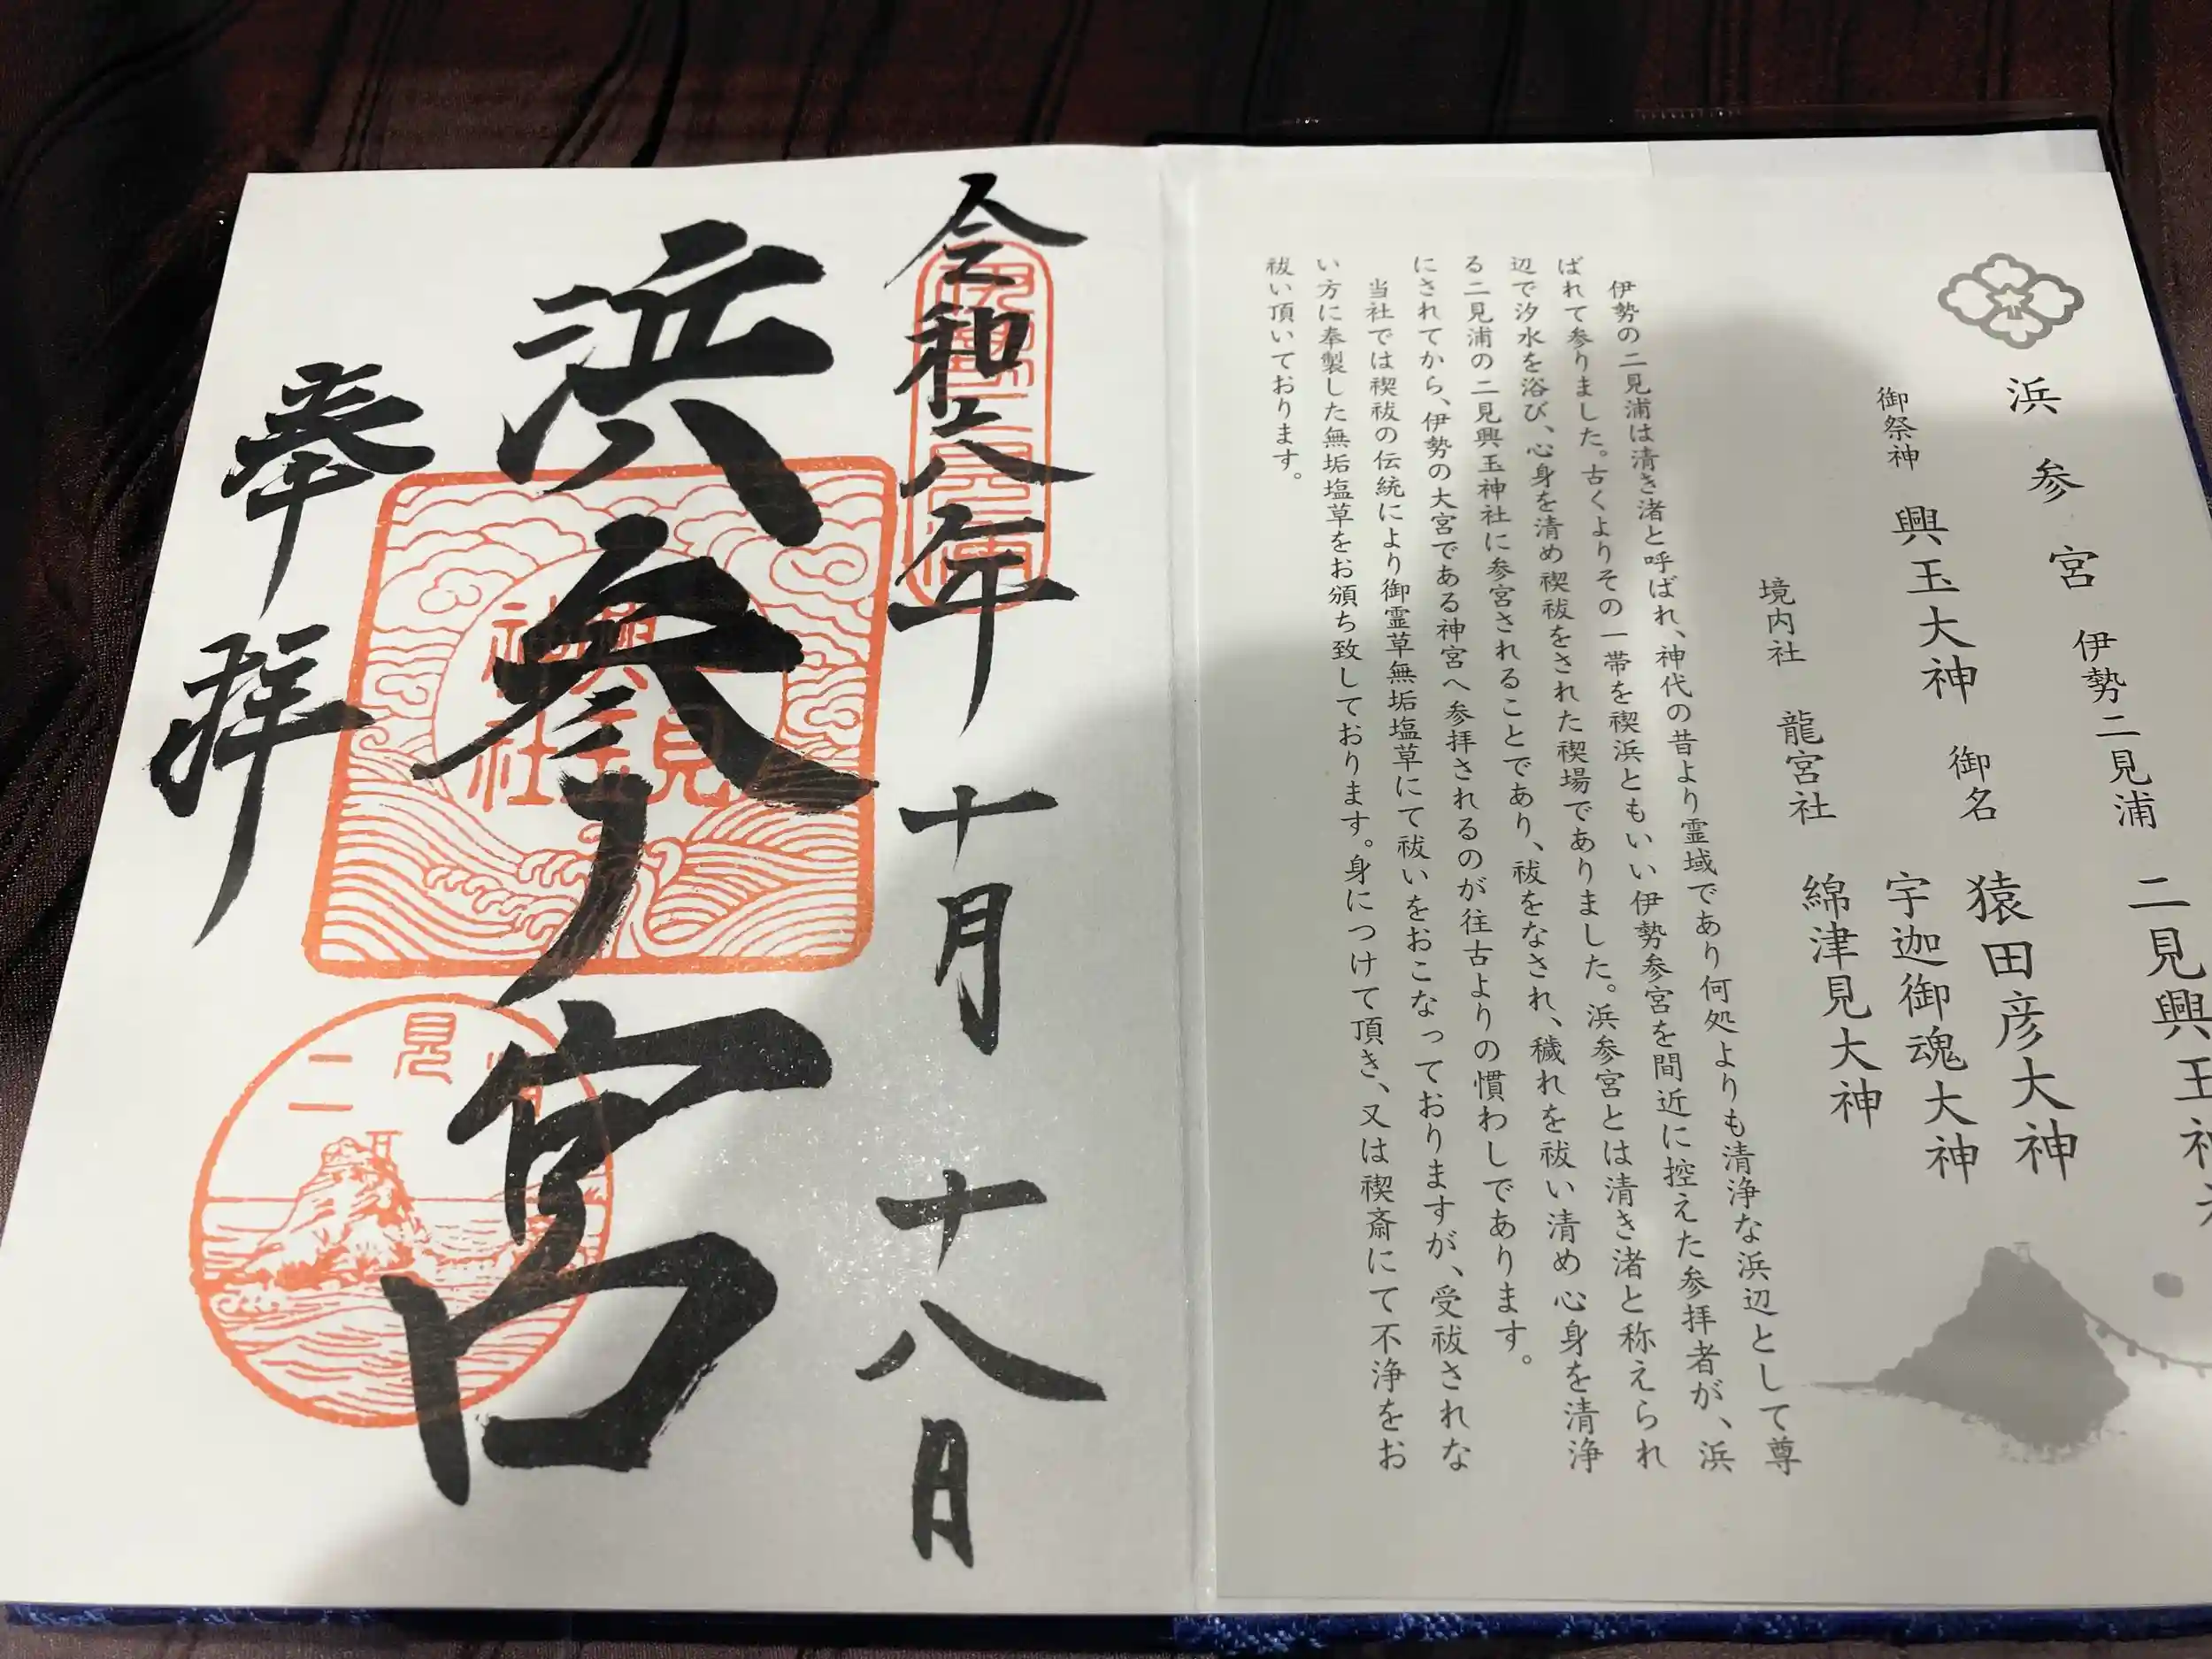 浜参宮 伊勢二見浦 二見興玉神
御祭神 興玉大神 御名 猿田彦大神
宇迦御魂大神
境内社 龍宮社 綿津見大神
伊勢の二見浦は清き渚と呼ばれ、神代の昔より霊域であり何処よりも清浄な浜辺として尊
ばれて参りました。古くよりその一帯を禊浜ともいい伊勢参宮を間近に控えた参拝者が、浜
辺で汐水を浴び、心身を清め禊祓をされた禊場でありました。浜参宮とは清き渚と称えられ
る二見浦の二見興玉神社に参宮されることであり、祓をなされ、穢れを祓い清め心身を清浄
にされてから、伊勢の大宮である神宮へ参拝されるのが往古よりの慣わしであります。
当社では禊祓の伝統により御霊草無垢塩草にて祓いをおこなっておりますが、受祓されな
い方に奉製した無垢塩草をお頒ち致しております。身につけて頂き、又は禊斎にて不浄をお
祓い頂いております。
令和六年十月十八日
浜参宮
二見興玉神社
二見浦
奉拝